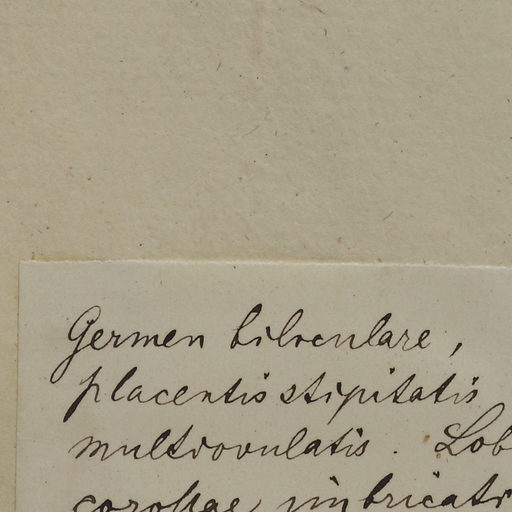 Germen biloculare,
placentis stipitatis
multiovulatis. Lob
corollae imbricati